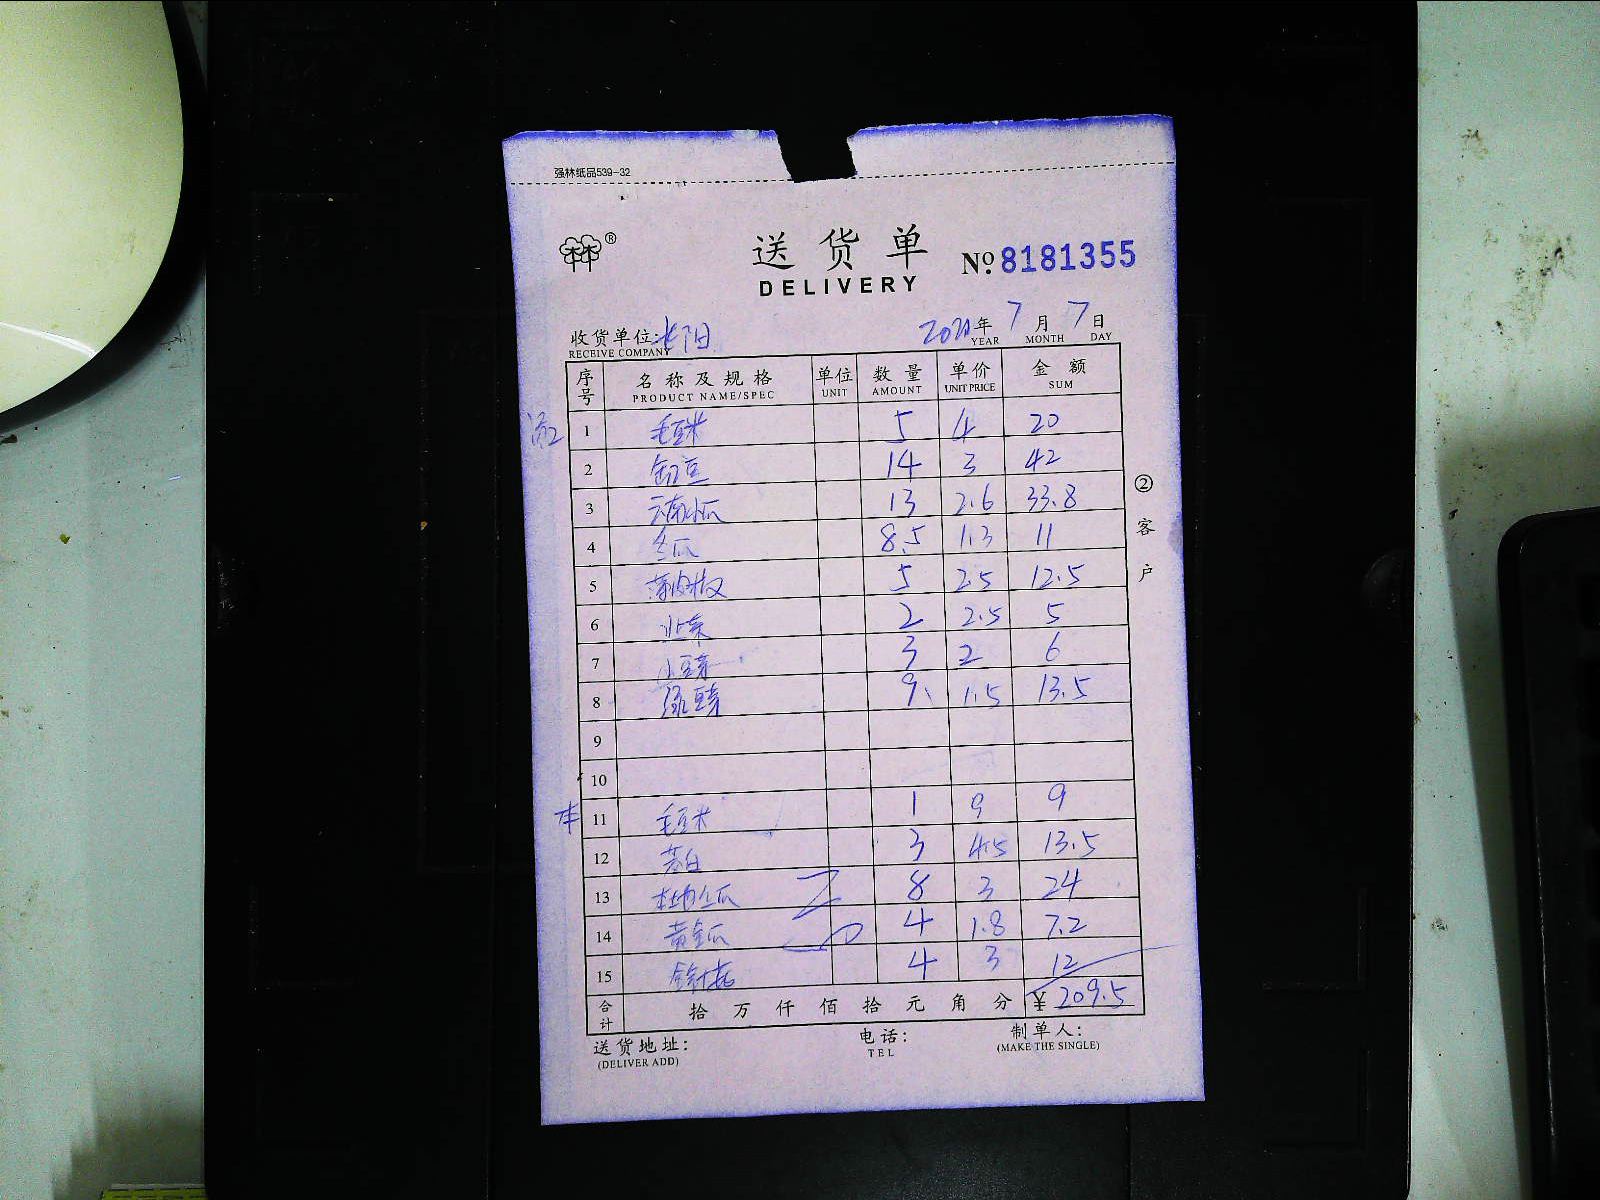 强林纸品539-32
® 送货单 No 8181355
DELIVERY
收货单位: 2021年 7月 7日
RECEIVE COMPANY YEAR MONTH DAY
序号 名称及规格 单位 数量 单价 金额
PRODUCT NAME/SPEC UNIT AMOUNT UNIT PRICE SUM
1 毛豆米 5 4 20
2 豆 14 3 42
3 云南小瓜 13 2.6 33.8
4 丝瓜 8.5 1.3 11
5 5 2.5 12.5
6 2 2.5 5
7 小豆芽 3 2 6
8 绿豆芽 9 1.5 13.5
9
10
本 11 毛豆米 1 9 9
12 3 4.5 13.5
13 本地丝瓜 8 3 24
14 黄金瓜 4 1.8 7.2
15 金针菇 4 3 12
合计 拾 万 仟 佰 拾 元 角 分 ¥ 209.5
送货地址: 电话: 制单人:
(DELIVER ADD) TEL (MAKE THE SINGLE)
②客户